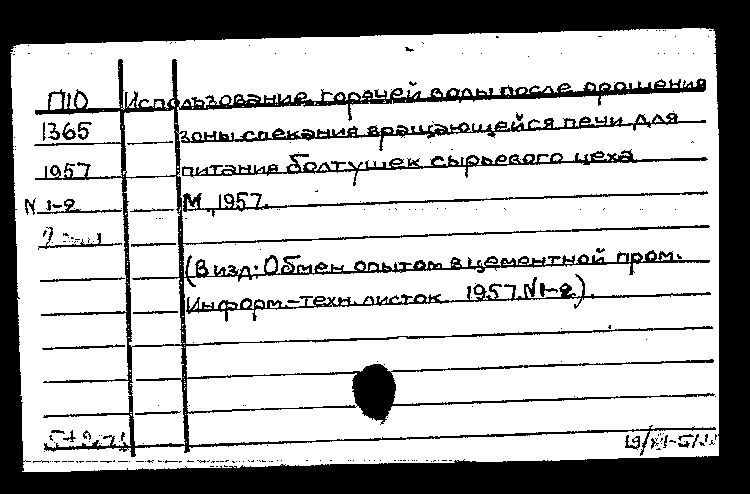 П10 Использование горячей воды после орошения
1365 зоны спекания вращающейся печи для
1957 питания болтушек сырьевого цеха
N 1-2 М., 1957.
(В изд: Обмен опытом в цементной пром.
Информ.-техн. листок 1957 N 1-2).